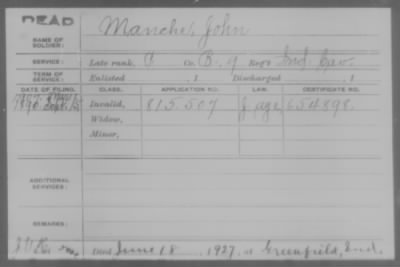 DEAD
NAME OF SOLDIER: Manche, John
SERVICE: Late rank, P in B, 9 Reg't Ind. Cav.
TERM OF SERVICE: Enlisted , 1 Discharged , 1
DATE OF FILING. CLASS. APPLICATION NO. LAW. CERTIFICATE NO.
Invalid, 815.507 age, 654898.
Widow,
Minor,
ADDITIONAL SERVICES:
REMARKS:
Died June 18 1927, at Greenfield, Ind.